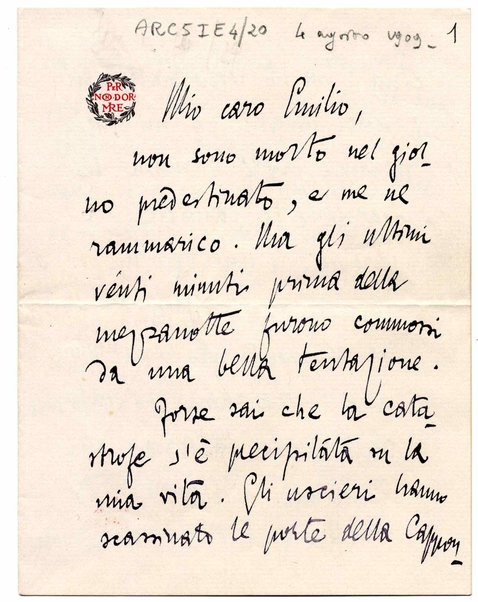 ARC5IE4/20 4 agosto 1909 - 1
PER
NON DOR
MIRE
Mio caro Emilio,
non sono morto nel gior_
no predestinato, e me ne
rammarico. Ma gli ultimi
vénti minuti prima della
mezzanotte furono commossi
da una bella tentazione.
Forse sai che la cata_
strofe s'è precipitata su la
mia vita. Gli uscieri hanno
scassinato le porte della Cappon_